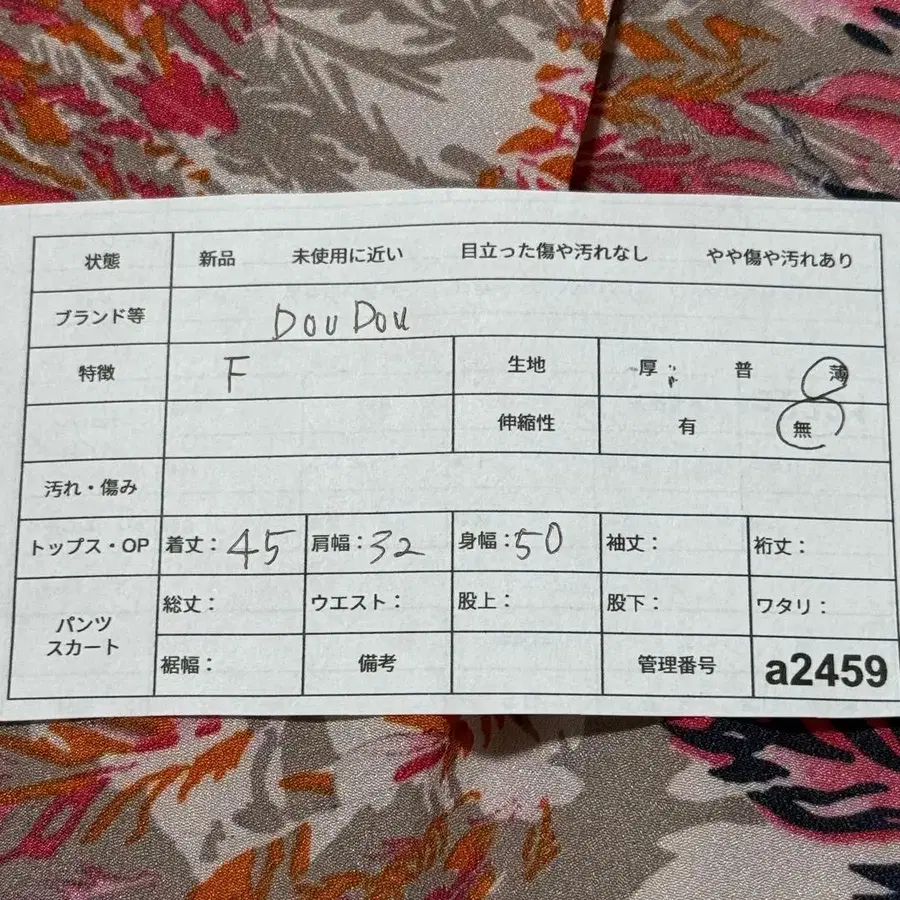 状態 新品 未使用に近い 目立った傷や汚れなし やや傷や汚れあり
ブランド等 DOU DOU
特徴 F 生地 厚 普 薄
伸縮性 有 無
汚れ・傷み
トップス・OP 着丈：45 肩幅：32 身幅：50 袖丈： 裄丈：
パンツ
スカート
総丈： ウエスト： 股上： 股下： ワタリ：
裾幅： 備考 管理番号 a2459